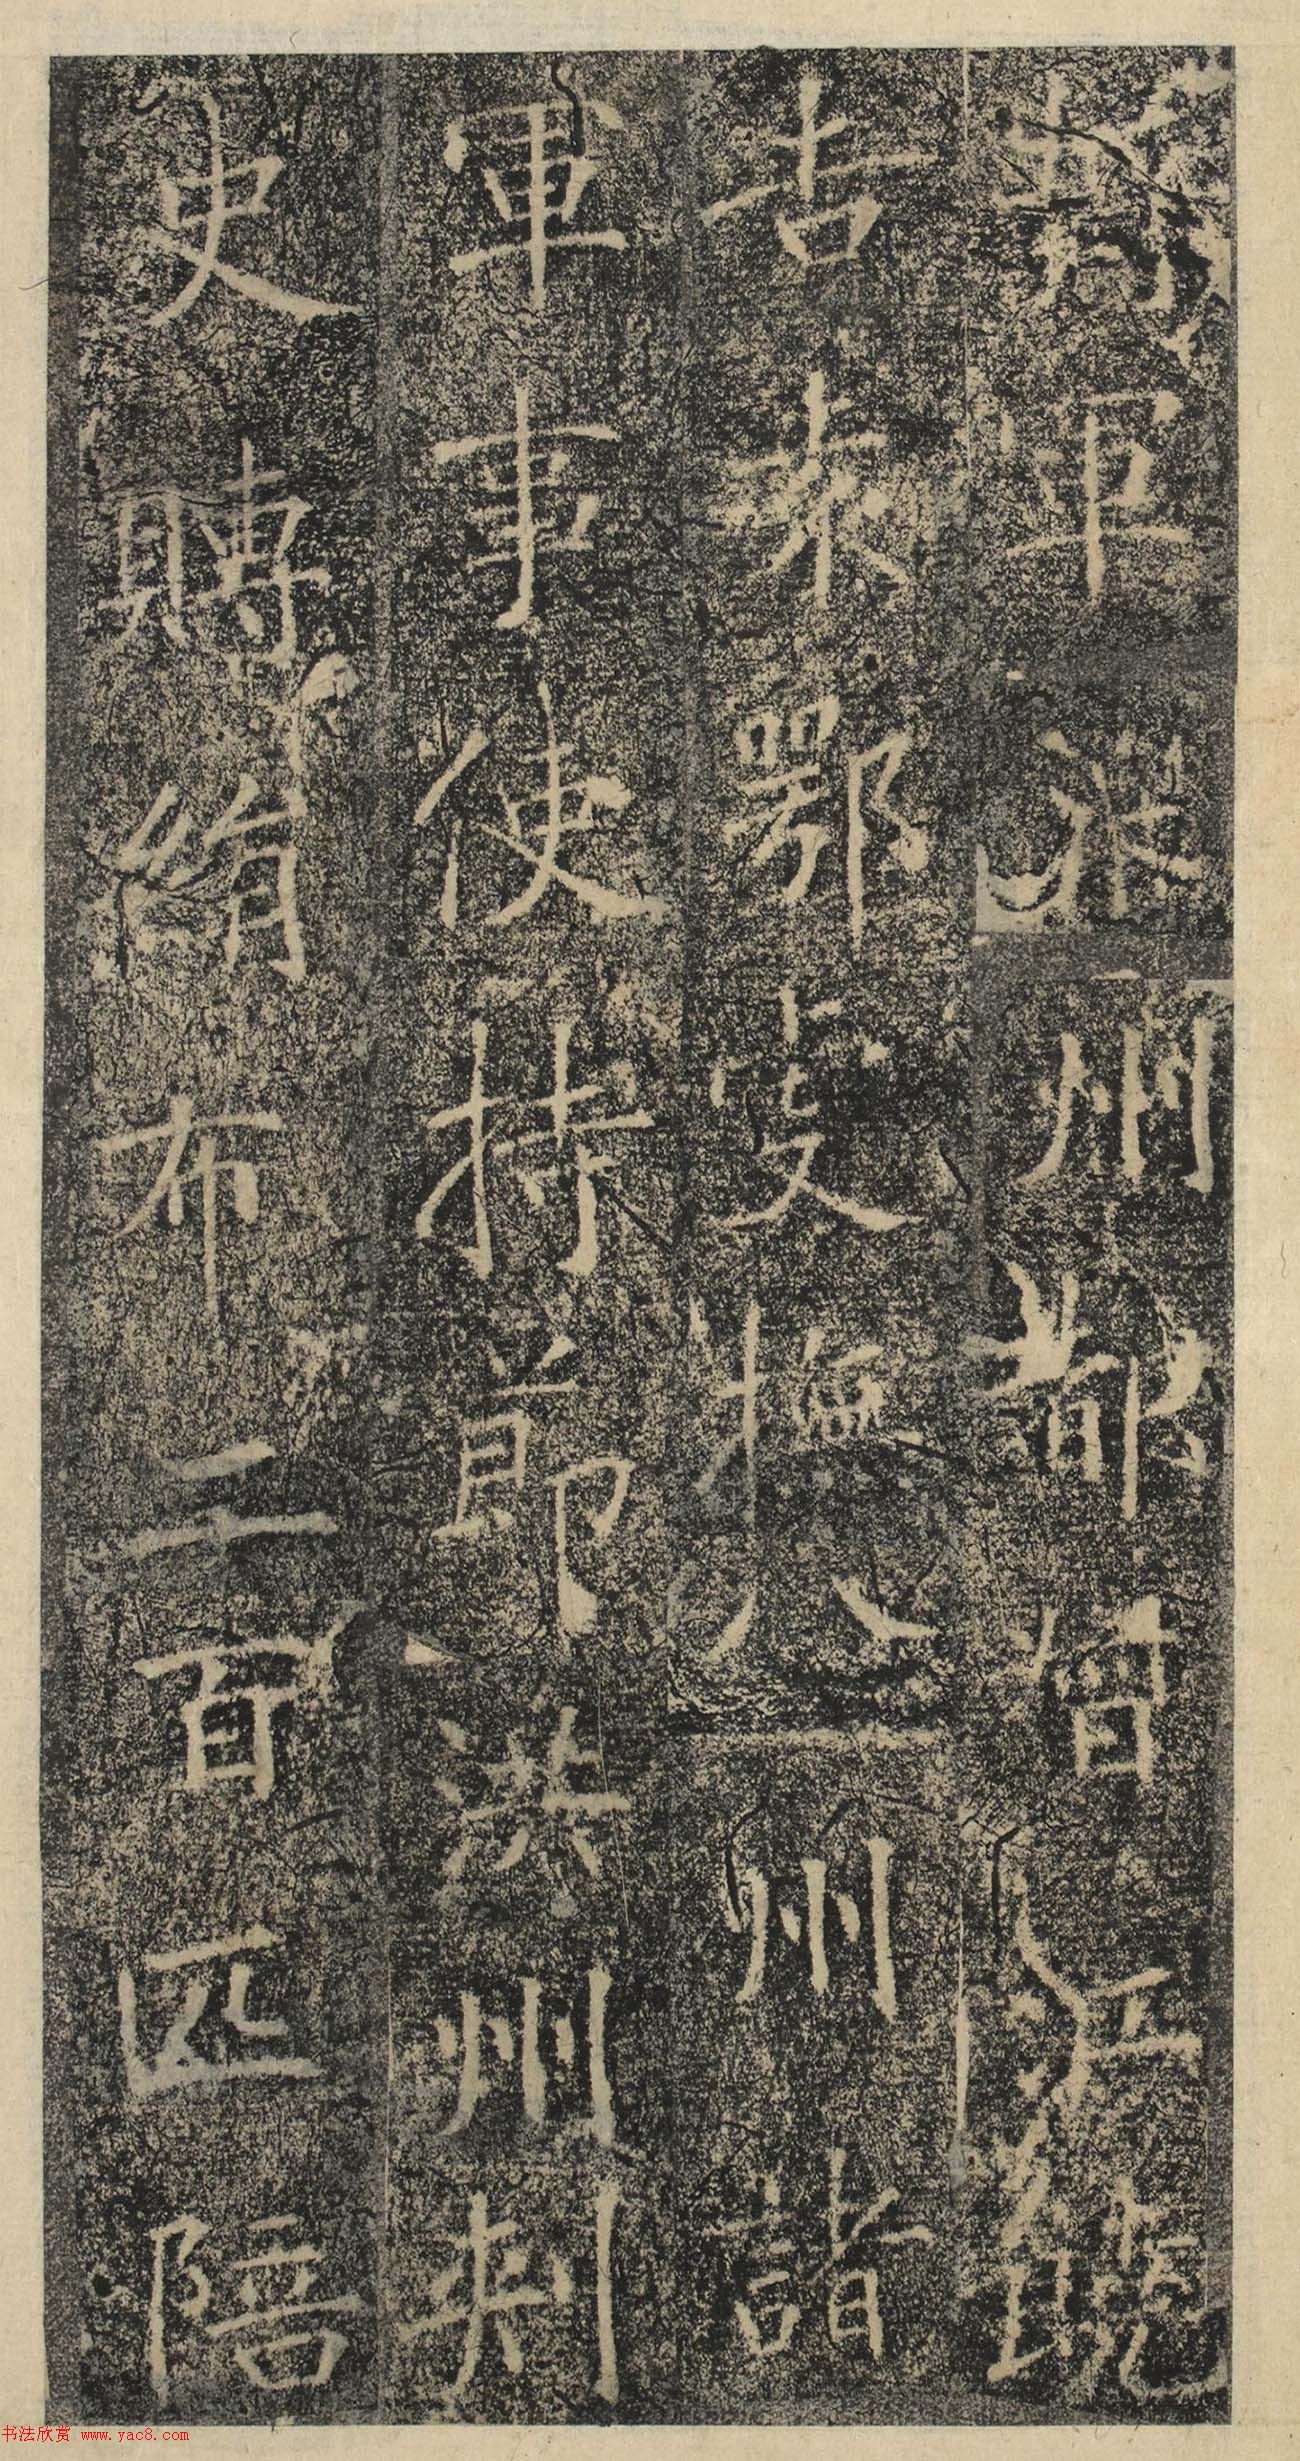 將軍洪州都督江饒
吉袁鄂虔撫八州諸
軍事使持節洪州刺
史賻絹布二百匹陪
书法欣赏 www.yac8.com